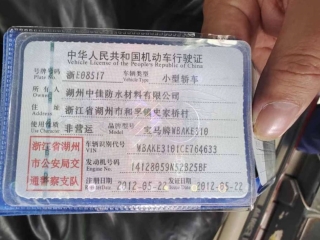 中华人民共和国机动车行驶证
Vehicle License of the People's Republic of China
号牌号码 浙E08517 车辆类型 小型轿车
Plate No. Vehicle Type
所有人 湖州中佳防水材料有限公司
Owner
住址 浙江省湖州市和孚镇史家桥村
Address
使用性质 非营运 品牌型号 宝马牌WBAKE310
浙江省湖州 车辆识别代号 WBAKE3101CE764633
VIN
市公安局交 发动机号码 14128059N52B25BF
Engine No.
通警察支队 2012-05-22 2012-05-22